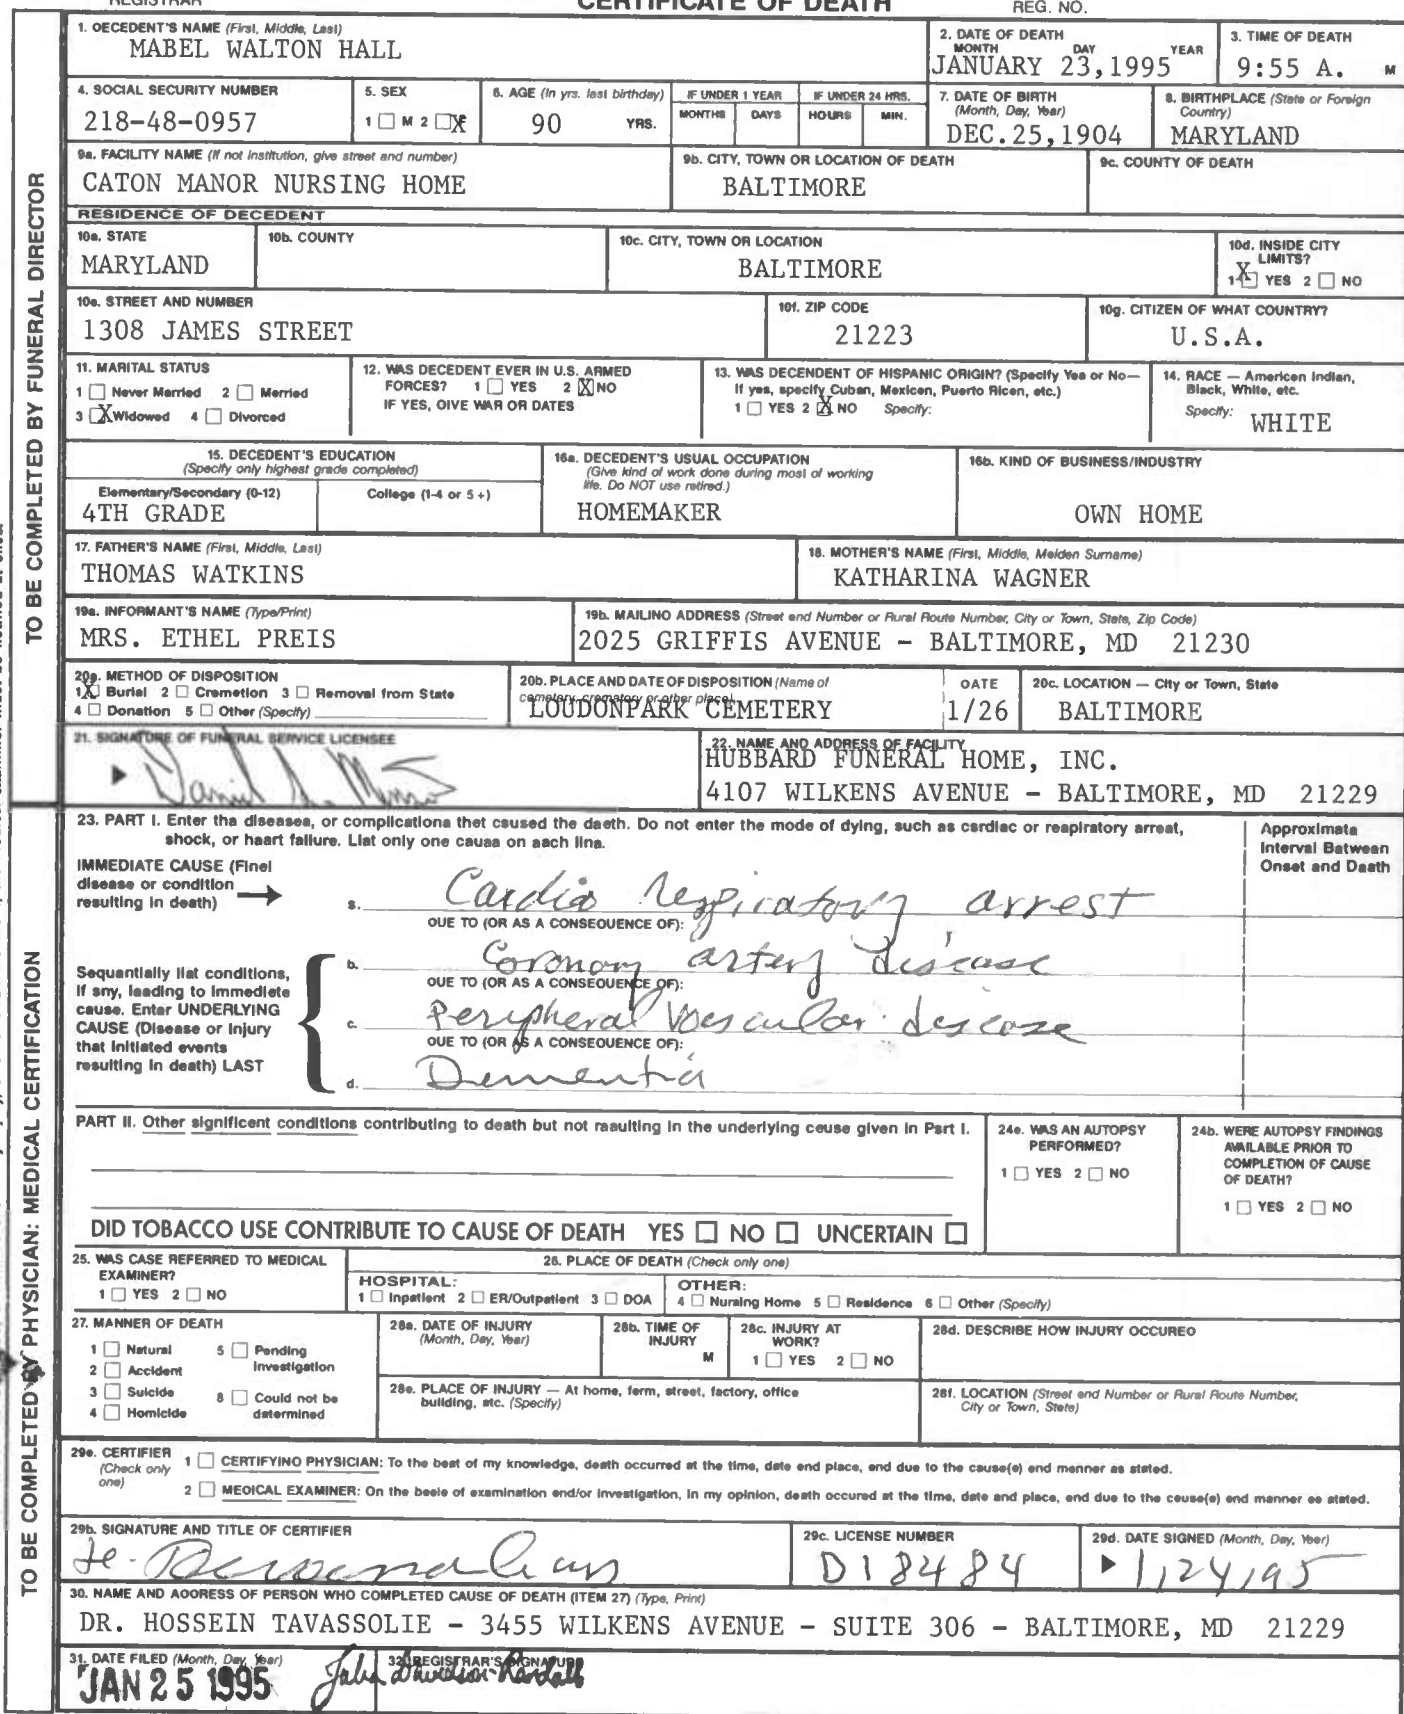 REGISTRAR
CERTIFICATE OF DEATH
REG. NO.
TO BE COMPLETED BY FUNERAL DIRECTOR
1. DECEDENT'S NAME (First, Middle, Last)
MABEL WALTON HALL
2. DATE OF DEATH
MONTH DAY YEAR
JANUARY 23,1995
3. TIME OF DEATH
9:55 A. M
4. SOCIAL SECURITY NUMBER
218-48-0957
5. SEX
1 ☐ M 2 ☐X F
6. AGE (In yrs. last birthday)
90 YRS.
IF UNDER 1 YEAR
MONTHS DAYS
IF UNDER 24 HRS.
HOURS MIN.
7. DATE OF BIRTH
(Month, Day, Year)
DEC.25,1904
8. BIRTHPLACE (State or Foreign
Country)
MARYLAND
9a. FACILITY NAME (If not institution, give street and number)
CATON MANOR NURSING HOME
9b. CITY, TOWN OR LOCATION OF DEATH
BALTIMORE
9c. COUNTY OF DEATH
RESIDENCE OF DECEDENT
10a. STATE
MARYLAND
10b. COUNTY
10c. CITY, TOWN OR LOCATION
BALTIMORE
10d. INSIDE CITY
LIMITS?
1 X YES 2 ☐ NO
10e. STREET AND NUMBER
1308 JAMES STREET
10f. ZIP CODE
21223
10g. CITIZEN OF WHAT COUNTRY?
U.S.A.
11. MARITAL STATUS
1 ☐ Never Married 2 ☐ Married
3 ☐X Widowed 4 ☐ Divorced
12. WAS DECEDENT EVER IN U.S. ARMED
FORCES? 1 ☐ YES 2 X NO
IF YES, GIVE WAR OR DATES
13. WAS DECENDENT OF HISPANIC ORIGIN? (Specify Yes or No—
If yes, specify Cuban, Mexican, Puerto Rican, etc.)
1 ☐ YES 2 X NO Specify:
14. RACE — American Indian,
Black, White, etc.
Specify: WHITE
15. DECEDENT'S EDUCATION
(Specify only highest grade completed)
Elementary/Secondary (0-12) College (1-4 or 5+)
4TH GRADE
16a. DECEDENT'S USUAL OCCUPATION
(Give kind of work done during most of working
life. Do NOT use retired.)
HOMEMAKER
16b. KIND OF BUSINESS/INDUSTRY
OWN HOME
17. FATHER'S NAME (First, Middle, Last)
THOMAS WATKINS
18. MOTHER'S NAME (First, Middle, Maiden Surname)
KATHARINA WAGNER
19a. INFORMANT'S NAME (Type/Print)
MRS. ETHEL PREIS
19b. MAILING ADDRESS (Street and Number or Rural Route Number, City or Town, State, Zip Code)
2025 GRIFFIS AVENUE - BALTIMORE, MD 21230
20a. METHOD OF DISPOSITION
1 X Burial 2 ☐ Cremation 3 ☐ Removal from State
4 ☐ Donation 5 ☐ Other (Specify)
20b. PLACE AND DATE OF DISPOSITION (Name of
cemetery, crematory or other place)
LOUDONPARK CEMETERY
DATE
1/26
20c. LOCATION — City or Town, State
BALTIMORE
21. SIGNATURE OF FUNERAL SERVICE LICENSEE
22. NAME AND ADDRESS OF FACILITY
HUBBARD FUNERAL HOME, INC.
4107 WILKENS AVENUE - BALTIMORE, MD 21229
TO BE COMPLETED BY PHYSICIAN: MEDICAL CERTIFICATION
23. PART I. Enter the diseases, or complications that caused the death. Do not enter the mode of dying, such as cardiac or respiratory arrest,
shock, or heart failure. List only one cause on each line.
Approximate
Interval Between
Onset and Death
IMMEDIATE CAUSE (Final
disease or condition
resulting in death)
a. Cardio respiratory arrest
DUE TO (OR AS A CONSEQUENCE OF):
b. Coronary artery disease
DUE TO (OR AS A CONSEQUENCE OF):
Sequentially list conditions,
if any, leading to immediate
cause. Enter UNDERLYING
CAUSE (Disease or injury
that initiated events
resulting in death) LAST
c. Peripheral Vascular disease
DUE TO (OR AS A CONSEQUENCE OF):
d. Dementia
PART II. Other significant conditions contributing to death but not resulting in the underlying cause given in Part I.
24a. WAS AN AUTOPSY
PERFORMED?
1 ☐ YES 2 ☐ NO
24b. WERE AUTOPSY FINDINGS
AVAILABLE PRIOR TO
COMPLETION OF CAUSE
OF DEATH?
1 ☐ YES 2 ☐ NO
DID TOBACCO USE CONTRIBUTE TO CAUSE OF DEATH YES ☐ NO ☐ UNCERTAIN ☐
25. WAS CASE REFERRED TO MEDICAL
EXAMINER?
1 ☐ YES 2 ☐ NO
26. PLACE OF DEATH (Check only one)
HOSPITAL:
1 ☐ Inpatient 2 ☐ ER/Outpatient 3 ☐ DOA
OTHER:
4 ☐ Nursing Home 5 ☐ Residence 6 ☐ Other (Specify)
27. MANNER OF DEATH
1 ☐ Natural 5 ☐ Pending
Investigation
2 ☐ Accident
3 ☐ Suicide 8 ☐ Could not be
determined
4 ☐ Homicide
28a. DATE OF INJURY
(Month, Day, Year)
28b. TIME OF
INJURY
M
28c. INJURY AT
WORK?
1 ☐ YES 2 ☐ NO
28d. DESCRIBE HOW INJURY OCCURED
28e. PLACE OF INJURY — At home, farm, street, factory, office
building, etc. (Specify)
28f. LOCATION (Street and Number or Rural Route Number,
City or Town, State)
29a. CERTIFIER
(Check only
one)
1 ☐ CERTIFYING PHYSICIAN: To the best of my knowledge, death occurred at the time, date and place, and due to the cause(s) and manner as stated.
2 ☐ MEDICAL EXAMINER: On the basis of examination and/or investigation, in my opinion, death occured at the time, date and place, and due to the cause(s) and manner as stated.
29b. SIGNATURE AND TITLE OF CERTIFIER
29c. LICENSE NUMBER
D18484
29d. DATE SIGNED (Month, Day, Year)
1/24/95
30. NAME AND ADDRESS OF PERSON WHO COMPLETED CAUSE OF DEATH (ITEM 27) (Type, Print)
DR. HOSSEIN TAVASSOLIE - 3455 WILKENS AVENUE - SUITE 306 - BALTIMORE, MD 21229
31. DATE FILED (Month, Day, Year)
JAN 25 1995
32. REGISTRAR'S SIGNATURE
Davidson-Randall